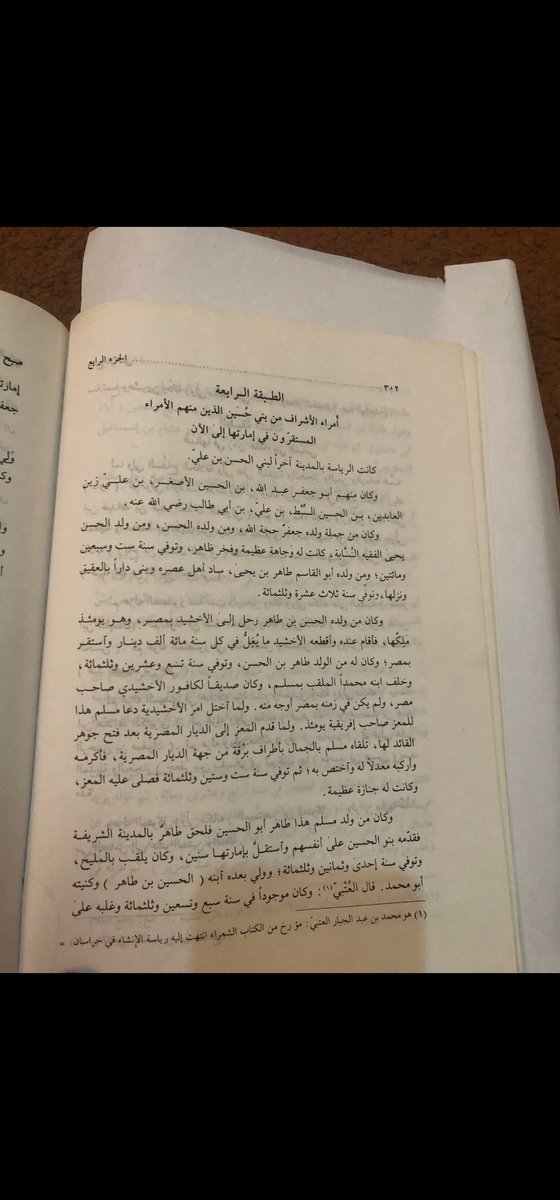 ٣٠٢ الجزء الرابع
الطبقة الرابعة
أمراء الأشراف من بني حُسين الذين منهم الأمراء
المستقرّون في إمارتها إلى الآن
كانت الرياسة بالمدينة آخراً لبني الحسن بن عليّ.
وكان منهم أبو جعفر عبد الله، بن الحسين الأصغر، بن عليّ زين
العابدين، بن الحسين السِّبْط، بن عليّ، بن أبي طالب رضي الله عنه.
وكان من جملة ولده جعفرٌ حجة الله، ومن ولده الحسن، ومن ولد الحسن
يحيى الفقيه النَّسَّابة، كانت له وجاهة عظيمة وفخر ظاهر، وتوفي سنة ست وسبعين
ومائتين؛ ومن ولده أبو القاسم طاهر بن يحيى، ساد أهل عصره وبنى داراً بالعقيق
ونزلها، وتوفي سنة ثلاث عشرة وثلثمائة.
وكان من ولده الحسن بن طاهر رحل إلى الأخشيد بمصر، وهو يومئذ
مَلِكُها، فأقام عنده وأقطعه الأخشيد ما يُغِلُّ في كل سنة مائة ألف دينار وآستقر
بمصر؛ وكان له من الولد طاهر بن الحسن، وتوفي سنة تسع وعشرين وثلثمائة،
وخلف ابنه محمداً الملقب بمسلم، وكان صديقاً لكافور الأخشيدي صاحب
مصر، ولم يكن في زمنه بمصر أوجه منه. ولما آختل أمر الأخشيدية دعا مسلم هذا
للمعز صاحب إفريقية يومئذ. ولما قدم المعز إلى الديار المصرية بعد فتح جوهر
القائد لها، تلقاه مسلم بالجمال بأطراف بَرْقَةَ من جهة الديار المصرية، فأكرمه
وأركبه معدلاً له وآختص به؛ ثم توفي سنة ست وستين وثلثمائة فصلى عليه المعز،
وكانت له جنازة عظيمة.
وكان من ولد مسلم هذا طاهر أبو الحسين فلحق طاهرٌ بالمدينة الشريفة
فقدّمه بنو الحسين على أنفسهم وآستقلَّ بإمارتها سنين، وكان يلقب بالمليح،
وتوفي سنة إحدى وثمانين وثلثمائة؛ وولي بعده آبنه ( الحسين بن طاهر ) وكنيته
أبو محمد. قال العُتْبيّ(١): وكان موجوداً في سنة سبع وتسعين وثلثمائة وغلبه على
(١) هو محمد بن عبد الجبار العتبيّ: مؤرخ من الكتاب الشعراء انتهت إليه رياسة الإنشاء في خراسان =